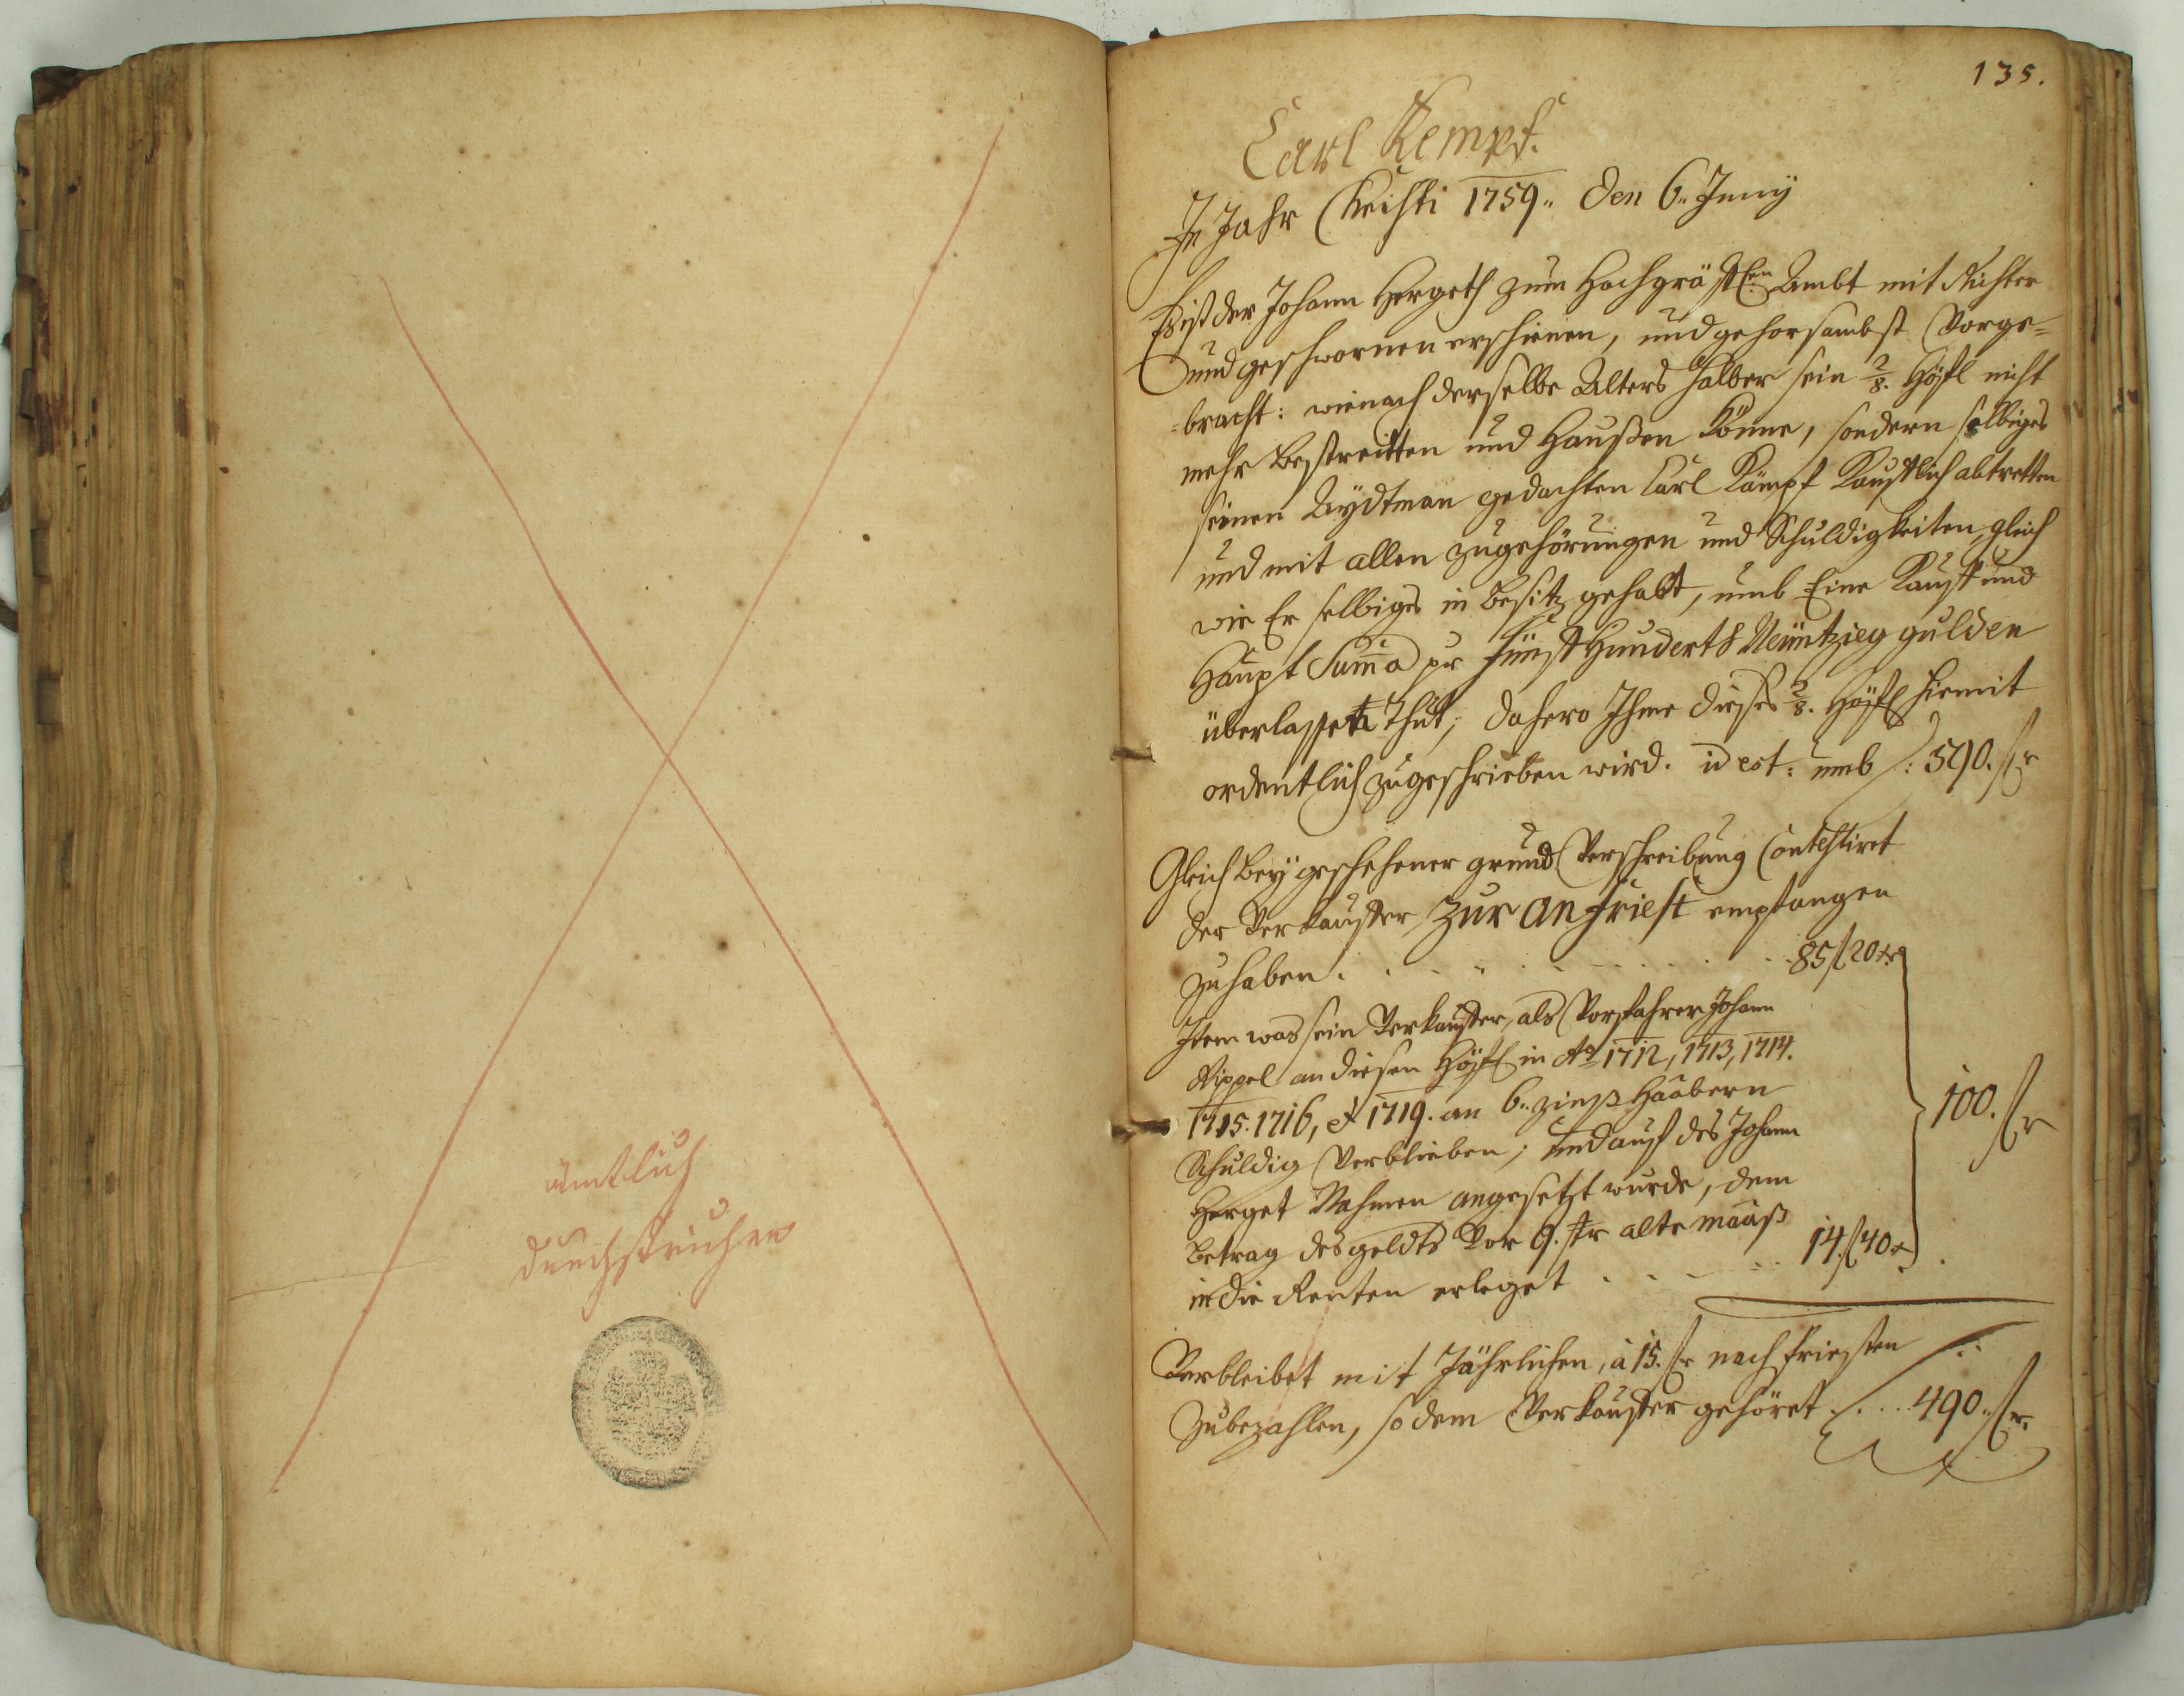 ämtlich
durchstrichen
135.
Carl Kempf.
In Jahr Christi 1759. den 6. Juny
Ist der Johann Hergeth zum Hochgräffl:en Ambt mit Richter
und geschwornen erschienen, und gehorsambst Vorge=
=bracht: wienach derselbe Alters halber sein 2/8. Höffl nicht
mehr bestreitten und Haußen könne, sondern selbiges
seinen Aydtman gedachten Carl Kämpf Kaufflich abtretten
und mit allen zugehörungen und Schuldigkeiten, gleich
wie Er selbiges in besitz gehabt, umb Eine Kauff und
Haupt Summa pr Fünff Hundert Neüntzieg gulden
überlassen Thut, dahero Ihme dieses 2/8. Höffl hiemit
ordentlich zugeschrieben wird. id est: umb : 590. fr
Gleich bey geschehener grund Verschreibung Contestiret
der Verkauffer zur anfriest empfangen
zu haben . . . . . . . . . . 85 f 20 xr
Item was sein Verkauffer, als Vorfahrer Johann
Rippel an diesen Höffl in Ao 1712, 1713, 1714.
1715. 1716, et 1719. an 6. zinß Haabern
Schuldig Verblieben; und auf des Johann
Herget Nahmen angesetzt wurde, dem
betrag des geldts Vor 9. str alte maaß
in die Renten erleget . . . . . 14. f 40 x
100. fr
Verbleibet mit Jährlichen, à 15. fr nach friesten
zubezahlen, so dem Verkauffer gehöret . . . 490. fr.